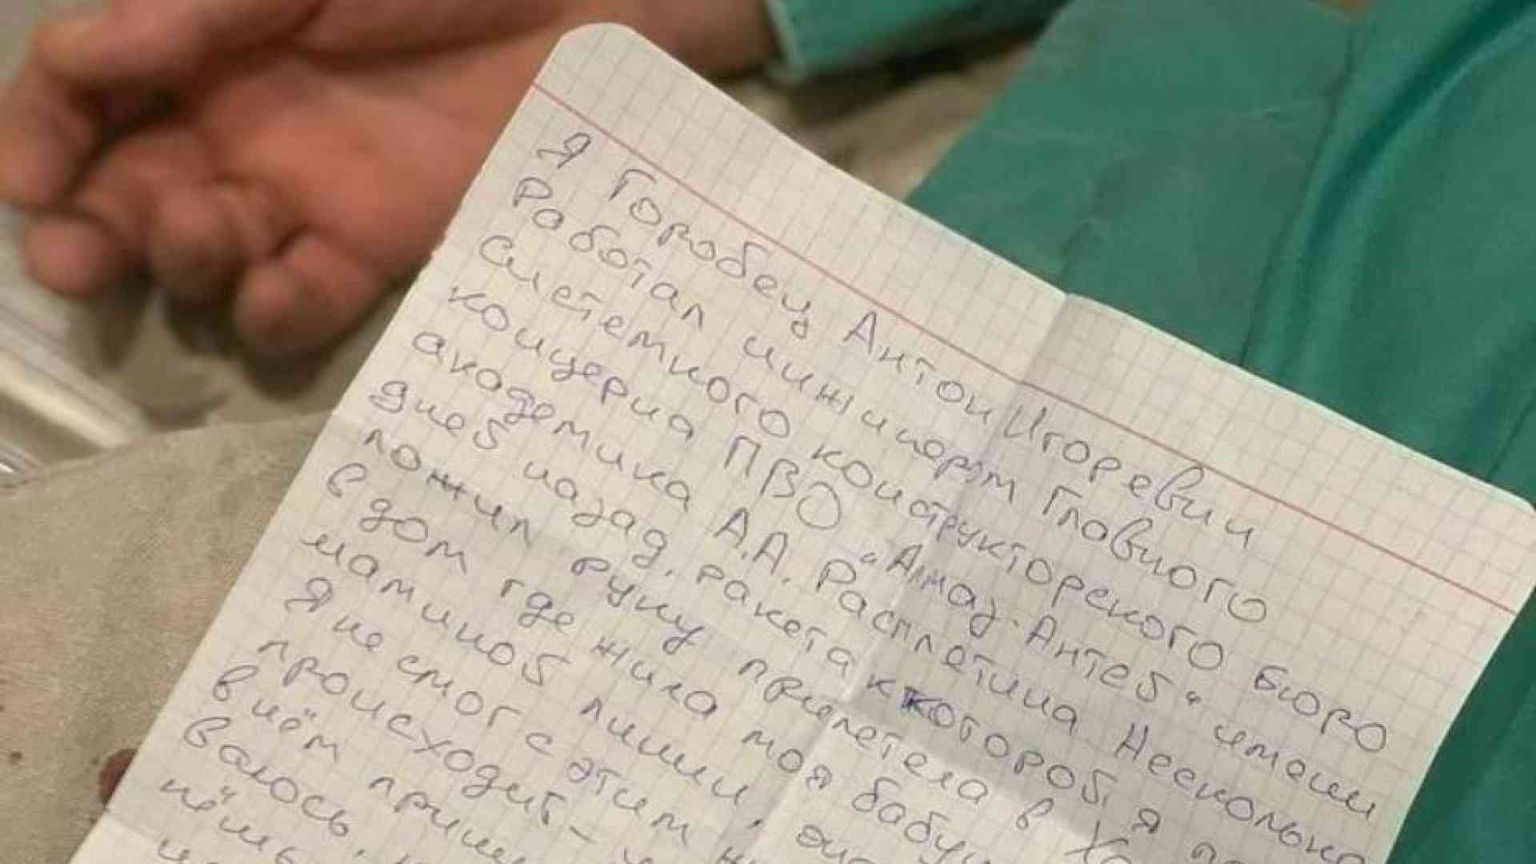 Я Горобец Антон Игоревич
Работал инжинором Главного
системного конструкторского бюро
концерна ПВО "Алмаз-Антей" имени
академика А.А. Расплетина Несколько
дней назад, ракета к которой я
ложил руку прилетела в
в дом где жила моя
маминой линии,
Я не смог с этим
происходит-
в нём
ваюсь,